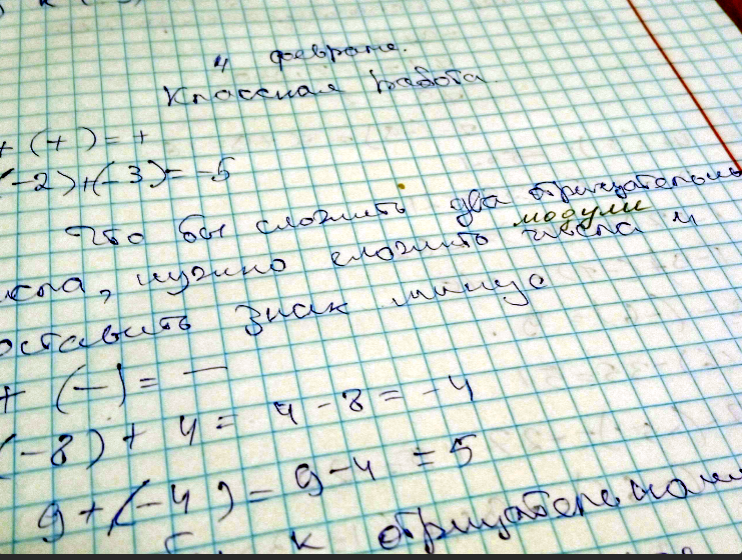 4 февраля.
Классная работа.
+ (+) = +
(-2)+(-3)= -5
Что бы сложить два отрицательны
исла, нужно сложить модули числа и
оставить знак минус
+ (-) = -
(-8) + 4 = 4 - 8 = -4
9 + (-4) = 9 - 4 = 5
к отрицательном